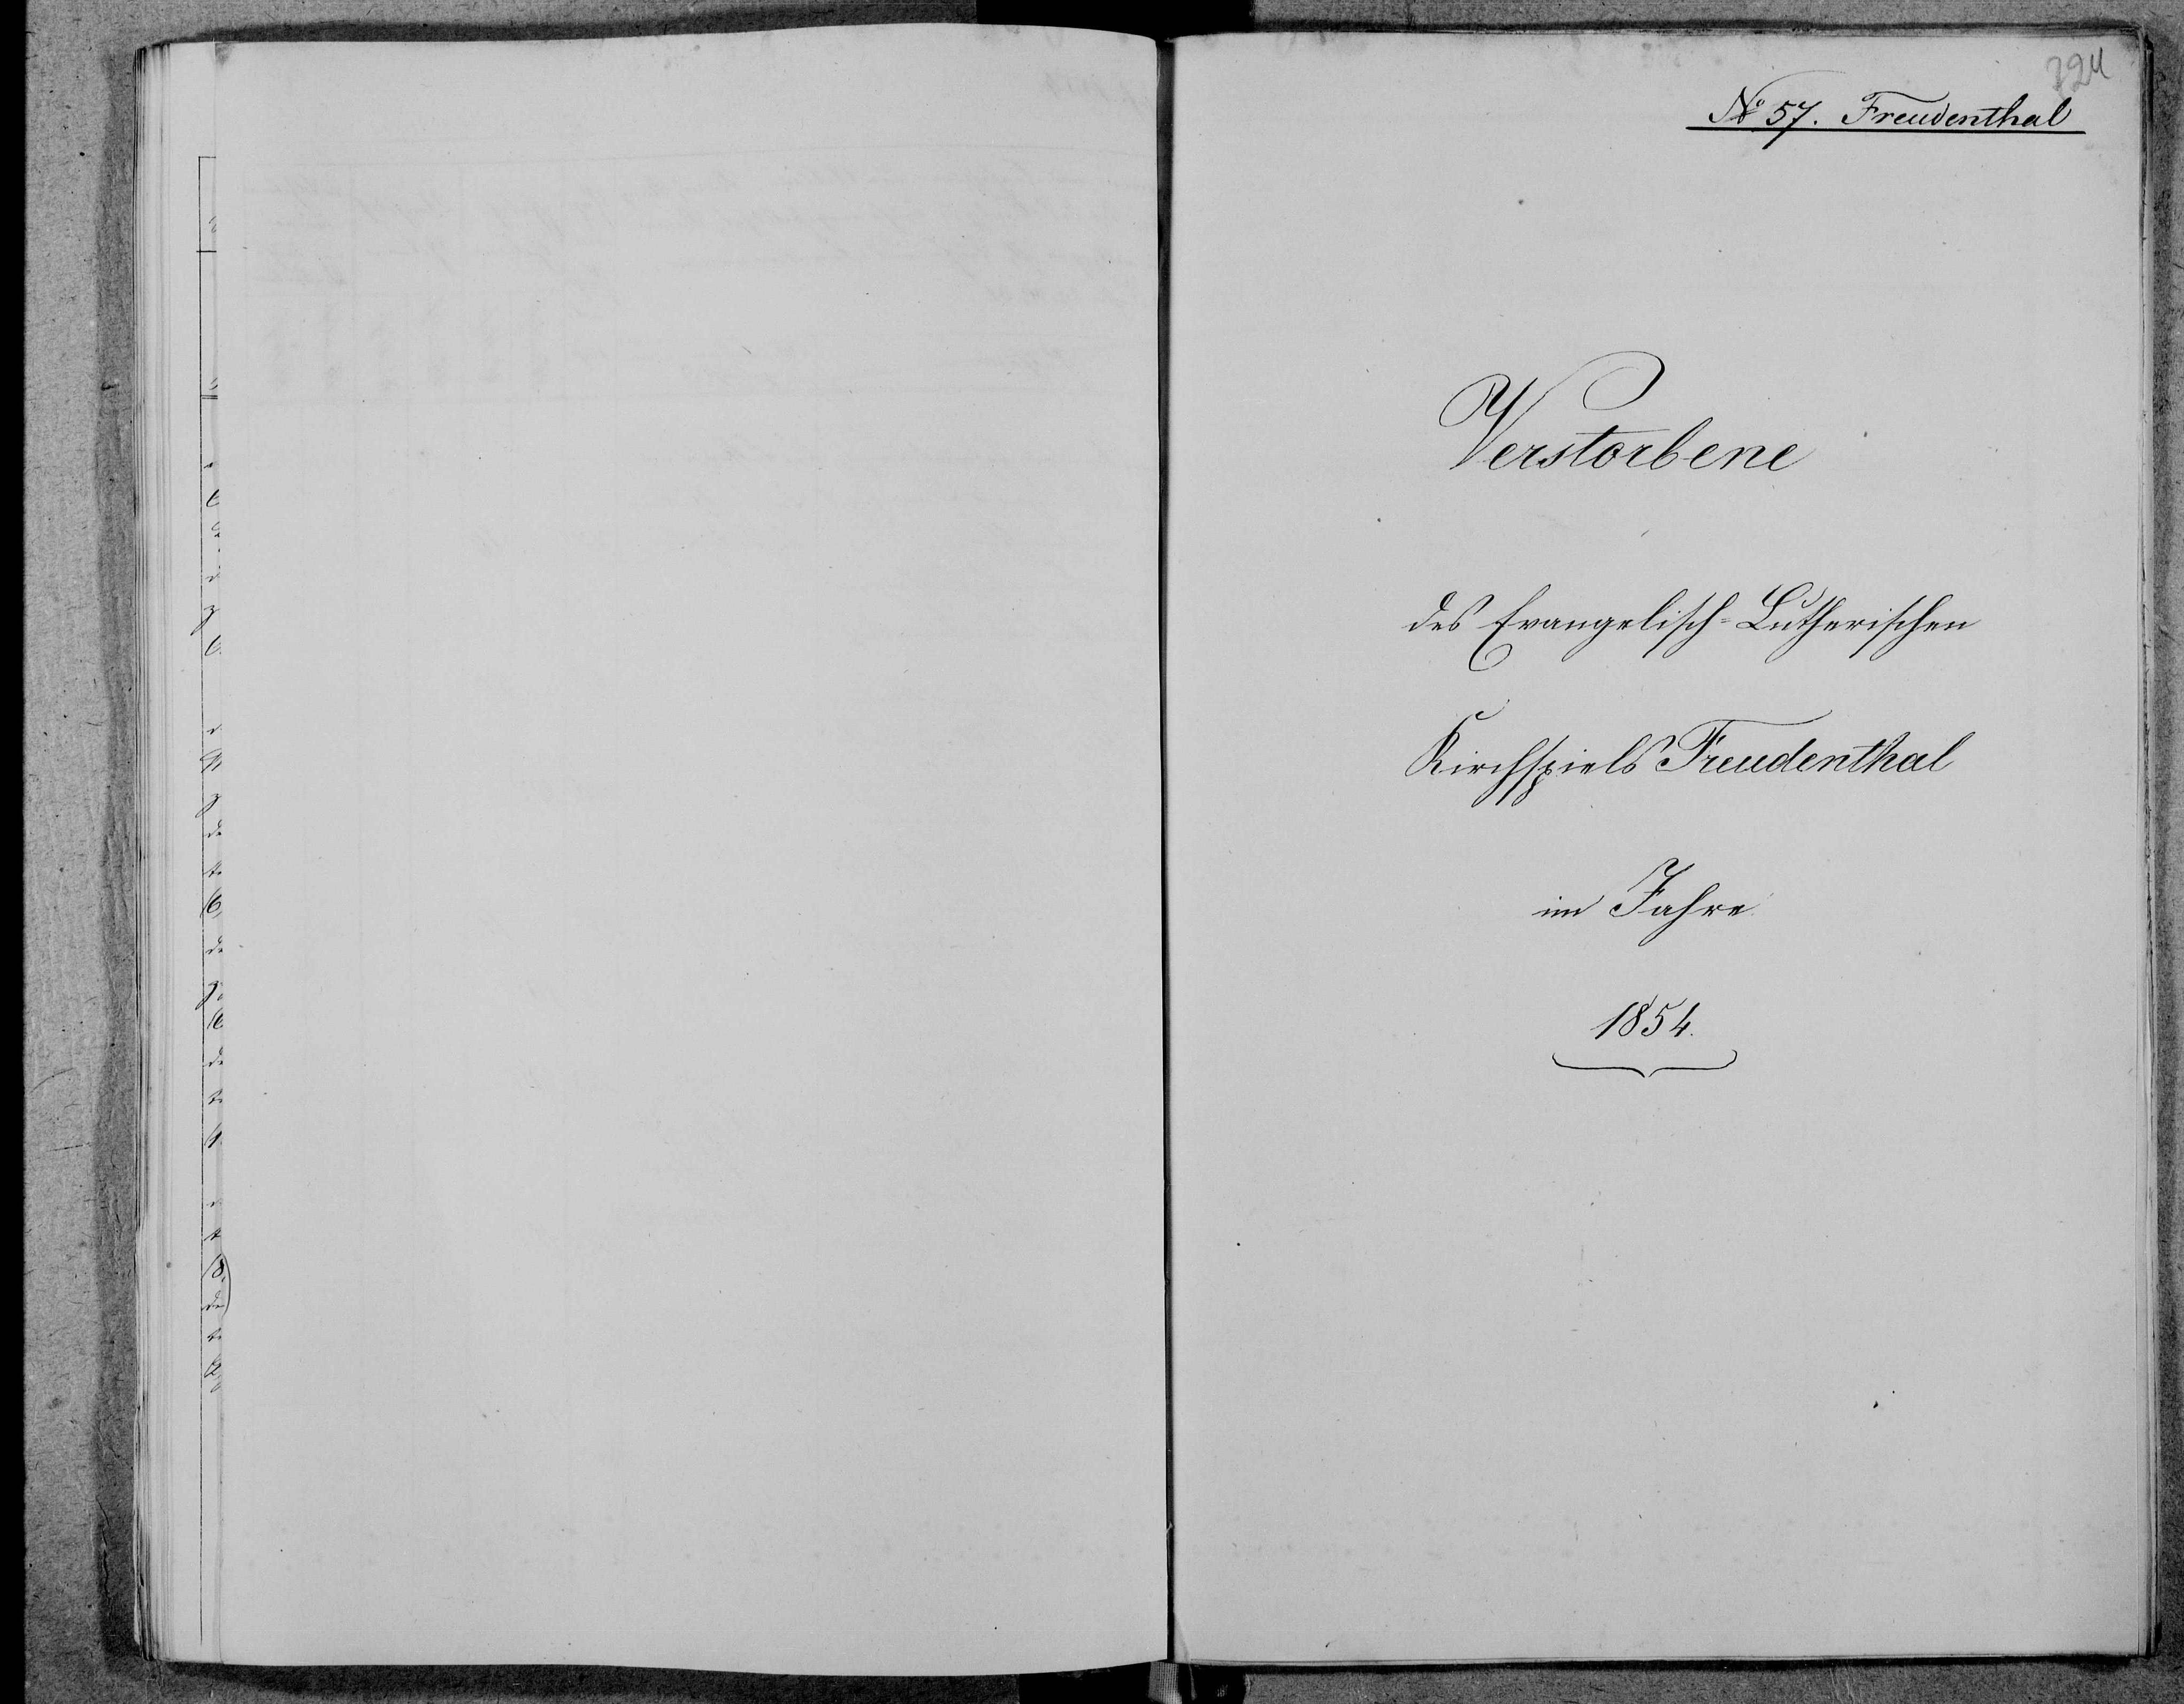 № 57. Freudenthal
Verstorbene
des Evangelisch-Lutherischen
Kirchspiels Freudenthal
im Jahre
1854.